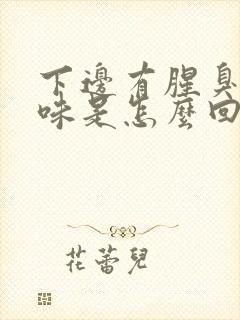 下邊有腥臭
味是怎麼回
花蕾兒